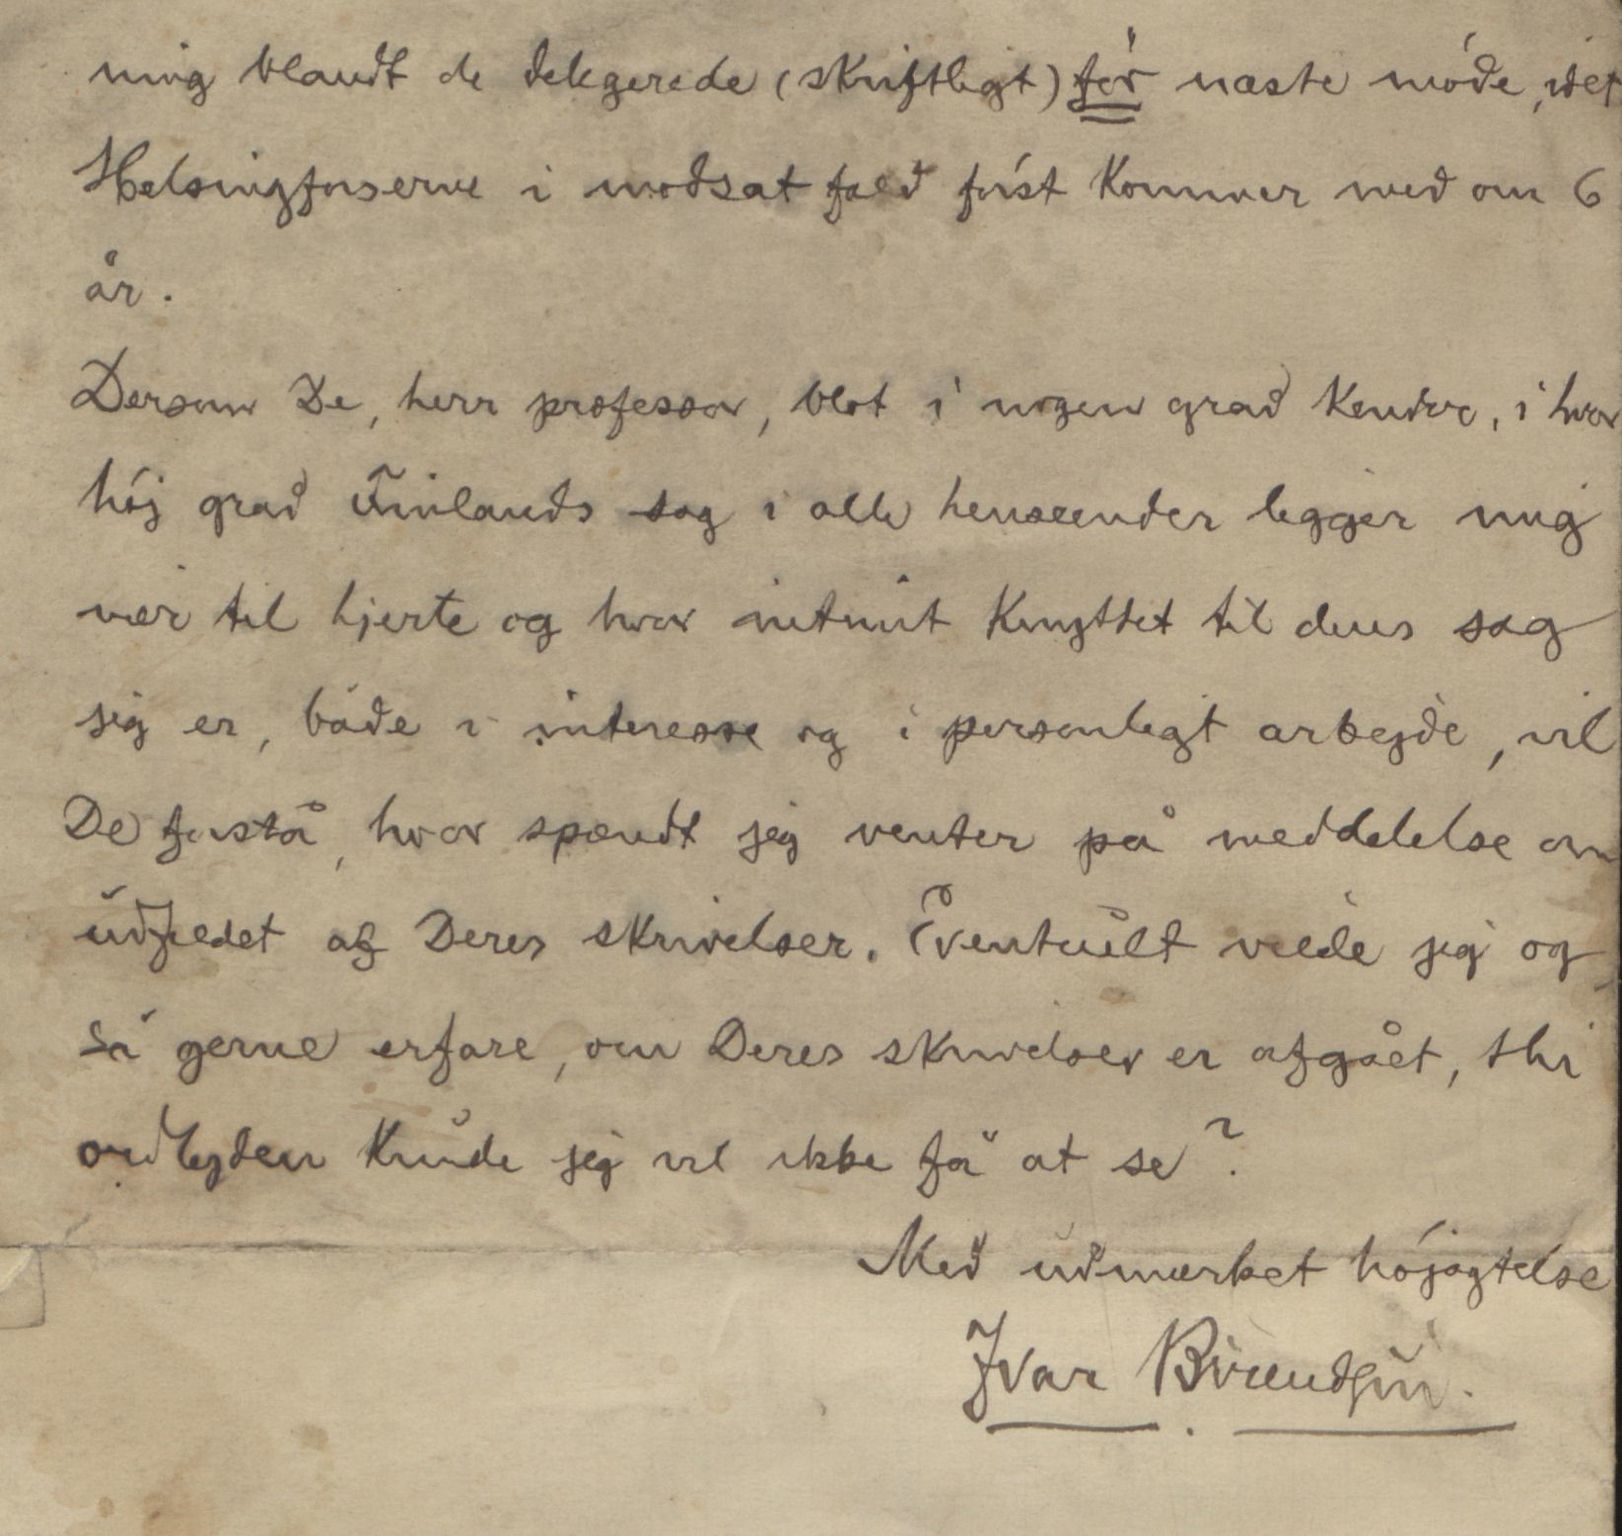 ning blandt de delegerede (skriftligt) før næste møde, idet
Helsingforserne i modsat fald først kommer med om 6
år.
Dersom De, herr professor, blot i nogen grad kender, i hvor
høj grad Finlands sag i alle henseender ligger mig
nær til hjerte og hvor intimt knyttet til dens sag
jeg er, både i interesse og i personligt arbejde, vil
De forstå, hvor spændt jeg venter på meddelelse om
udfaldet af Deres skrivelser. Eventuelt vilde jeg og
så gerne erfare, om Deres skrivelser er afgået, thi
ordlyden kunde jeg vel ikke få at se?
Med udmærket højagtelse
Ivar